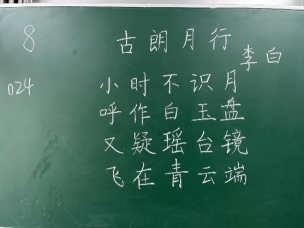 8
古朗月行
李白
024
小时不识月
呼作白玉盘
又疑瑶台镜
飞在青云端